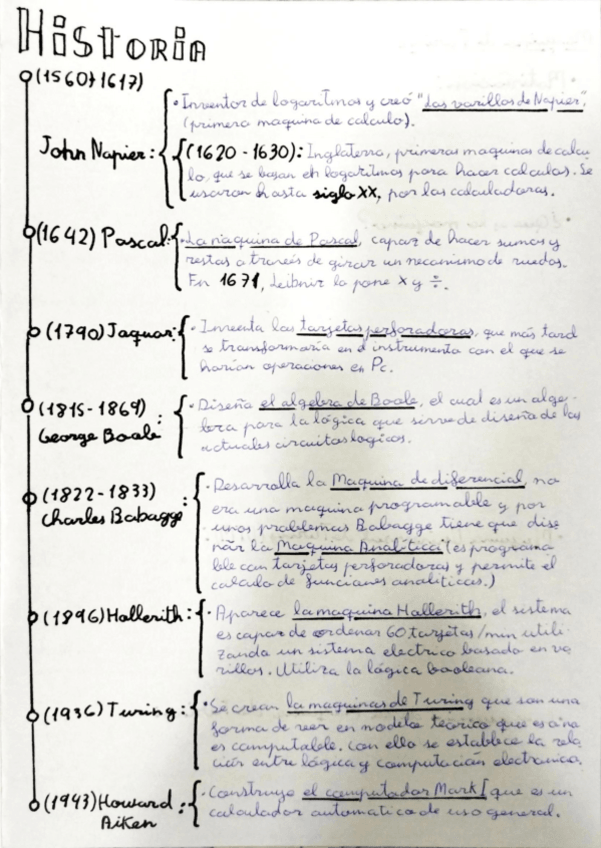 Historia
(1560-1617)
John Napier:
· Inventor de logaritmos y creó "las varillas de Napier".
(primera maquina de calculo).
(1620 - 1630): Inglaterra, primeras maquinas de calcu
lo, que se basan en logaritmos para hacer calculos. Se
usaron hasta siglo XX, por las calculadoras.
(1642) Pascal:
· La maquina de Pascal, capaz de hacer sumas y
restas a través de girar un mecanismo de ruedas.
En 1671, Leibniz la pone x y ÷.
(1790) Jaquar:
· Inventa las tarjetas perforadoras, que más tard
se transformaría en el instrumento con el que se
harían operaciones en Pc.
(1815-1869)
George Boole:
· Diseña el algebra de Boole, el cual es un alge-
bra para la lógica que sirve de diseña de los
actuales circuitos logicos.
(1822-1833)
Charles Babagge:
· Desarrolla la Maquina de diferencial, no
era una maquina programable y por
unos problemas Babagge tiene que dise
ñar la Maquina Analítica (es programa
ble con tarjetas perforadoras y permite el
calculo de funciones analiticas.)
(1896) Hollerith:
· Aparece la maquina Hollerith, el sistema
es capaz de ordenar 60 tarjetas/min utili-
zando un sistema electrico basado en va
rillos. Utiliza la lógica booleana.
(1936) Turing:
· Se crean la maquinas de Turing que son una
forma de ver en modelo teorico que es o no
es computable. Con ello se establece la rela
ción entre lógica y computacion electronica.
(1943) Howard
Aiken:
· Construye el computador Mark I que es un
calculador automatico de uso general.